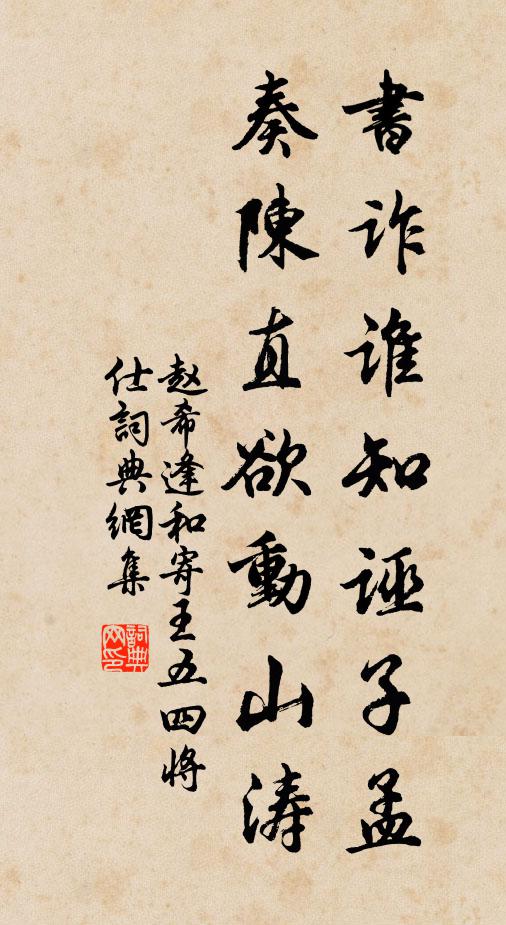 書詐誰知誣子孟
奏陳直欲動山濤
赵希逢和寄王五四將
仕詞典網集
詞典网印